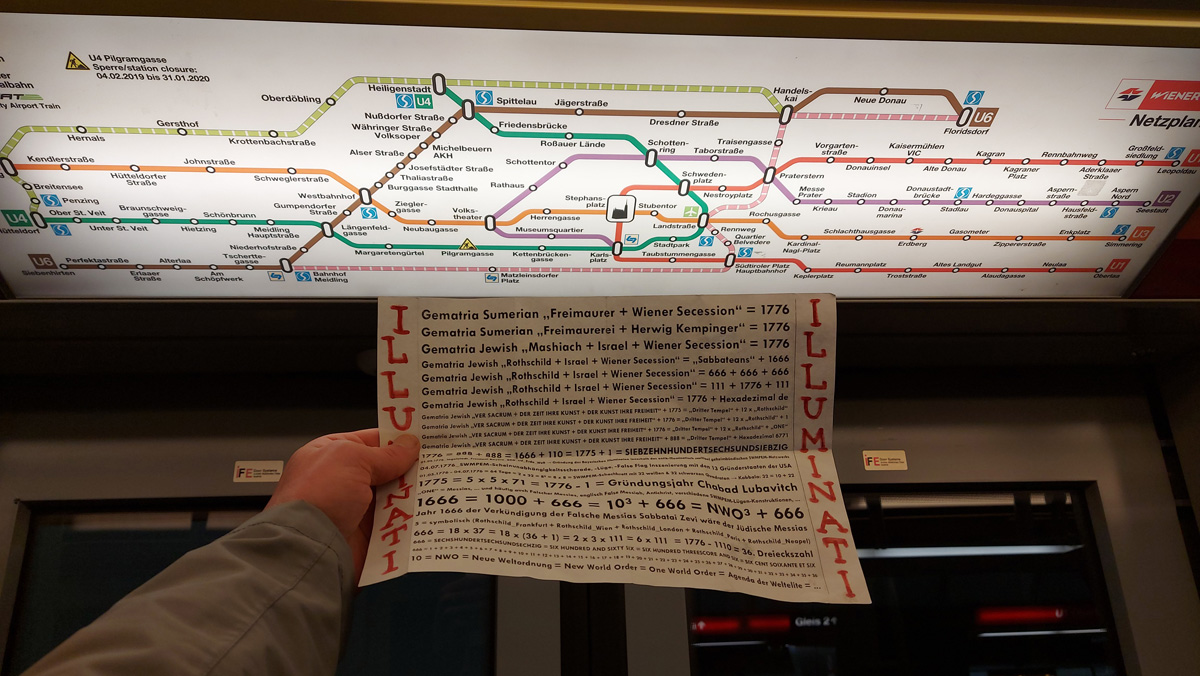 U4 Pilgramgasse
Sperre/station closure:
04.02.2019 bis 31.01.2020
ity Airport Train
WIENER
Netzplan
Heiligenstadt
U4
Oberdöbling
Spittelau
Jägerstraße
Dresdner Straße
Handels-
kai
Neue Donau
U6
Floridsdorf
Hernals
Gersthof
Krottenbachstraße
Nußdorfer Straße
Währinger Straße
Volksoper
Michelbeuern
AKH
Alser Straße
Josefstädter Straße
Thaliastraße
Burggasse Stadthalle
Friedensbrücke
Roßauer Lände
Schotten-
ring
Schottentor
Taborstraße
Traisengasse
Praterstern
Vorgarten-
straße
Donauinsel
Kaisermühlen
VIC
Alte Donau
Kagran
Kagraner
Platz
Rennbahnweg
Aderklaaer
Straße
Großfeld-
siedlung
Leopoldau
Kendlerstraße
Hütteldorfer
Straße
Johnstraße
Schweglerstraße
Westbahnhof
Breitensee
Penzing
Rathaus
Schweden-
platz
Nestroyplatz
Messe
Prater
Krieau
Stadion
Donau-
marina
Donaustadt-
brücke
Stadlau
Hardeggasse
Donauspital
Aspern-
straße
Hausfeld-
straße
Aspern
Nord
U2
Seestadt
U4
Hütteldorf
Ober St. Veit
Unter St. Veit
Braunschweig-
gasse
Hietzing
Schönbrunn
Meidling
Hauptstraße
Gumpendorfer
Straße
Längenfeld-
gasse
Ziegler-
gasse
Neubaugasse
Volks-
theater
Stephans-
platz
Herrengasse
Stubentor
Landstraße
Rochusgasse
Kardinal-
Nagl-Platz
Schlachthausgasse
Erdberg
Gasometer
Zippererstraße
Enkplatz
U3
Simmering
Museumsquartier
Niederhofstraße
Margaretengürtel
Pilgramgasse
Kettenbrücken-
gasse
Karls-
platz
Stadtpark
Taubstummengasse
Rennweg
Quartier
Belvedere
Südtiroler Platz
Hauptbahnhof
Keplerplatz
Reumannplatz
Troststraße
Altes Landgut
Alaudagasse
Neulaa
U1
Oberlaa
U6
Siebenhirten
Perfektastraße
Erlaaer
Straße
Alterlaa
Am
Schöpfwerk
Tschertte-
gasse
Bahnhof
Meidling
Matzleinsdorfer
Platz
ILLUMINATI
Gematria Sumerian „Freimaurer + Wiener Secession“ = 1776
Gematria Sumerian „Freimaurerei + Herwig Kempinger“ = 1776
Gematria Jewish „Mashiach + Israel + Wiener Secession“ = 1776
Gematria Jewish „Rothschild + Israel + Wiener Secession“ = „Sabbateans“ + 1666
Gematria Jewish „Rothschild + Israel + Wiener Secession“ = 666 + 666 + 666
Gematria Jewish „Rothschild + Israel + Wiener Secession“ = 111 + 1776 + 111
Gematria Jewish „Rothschild + Israel + Wiener Secession“ = 1776 + Hexadezimal de
Gematria Jewish „VER SACRUM + DER ZEIT IHRE KUNST + DER KUNST IHRE FREIHEIT“ + 1775 = „Dritter Tempel“ + 12 x „Rothschild“
Gematria Jewish „VER SACRUM + DER ZEIT IHRE KUNST + DER KUNST IHRE FREIHEIT“ + 1776 = „Dritter Tempel“ + 12 x „Rothschild“ + 1
Gematria Jewish „VER SACRUM + DER ZEIT IHRE KUNST + DER KUNST IHRE FREIHEIT“ + 1776 = „Dritter Tempel“ + 12 x „Rothschild“ + „ONE“
Gematria Jewish „VER SACRUM + DER ZEIT IHRE KUNST + DER KUNST IHRE FREIHEIT“ + 888 = „Dritter Tempel“ + Hexadezimal 6771
1776 = 888 + 888 = 1666 + 110 = 1775 + 1 = SIEBZEHNHUNDERTSECHSUNDSIEBZIG
1775 = 5 x 5 x 71 = 1776 - 1 = Gründungsjahr Chabad Lubavitch
1666 = 1000 + 666 = 10³ + 666 = NWO³ + 666
Jahr 1666 der Verkündigung der Falsche Messias Sabbatai Zevi wäre der Jüdische Messias
5 = symbolisch (Rothschild_Frankfurt + Rothschild_Wien + Rothschild_London + Rothschild_Paris + Rothschild_Neapel)
666 = 18 x 37 = 18 x (36 + 1) = 2 x 3 x 111 = 6 x 111 = 1776 - 1110 = 36. Dreieckszahl
666 = SECHSHUNDERTSECHSUNDSECHZIG = SIX HUNDRED AND SIXTY SIX = SIX HUNDRED THREESCORE AND SIX = SIX CENT SOIXANTE ET SIX
10 = NWO = Neue Weltordnung = New World Order = One World Order = Agenda der Weltelite = ...
ILLUMINATI
IFE
IFE
Gleis 2